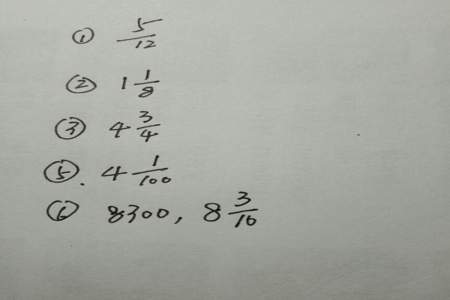 ① 5/12
② 1 1/8
③ 4 3/4
⑤. 4 1/100
⑥ 8300, 8 3/10